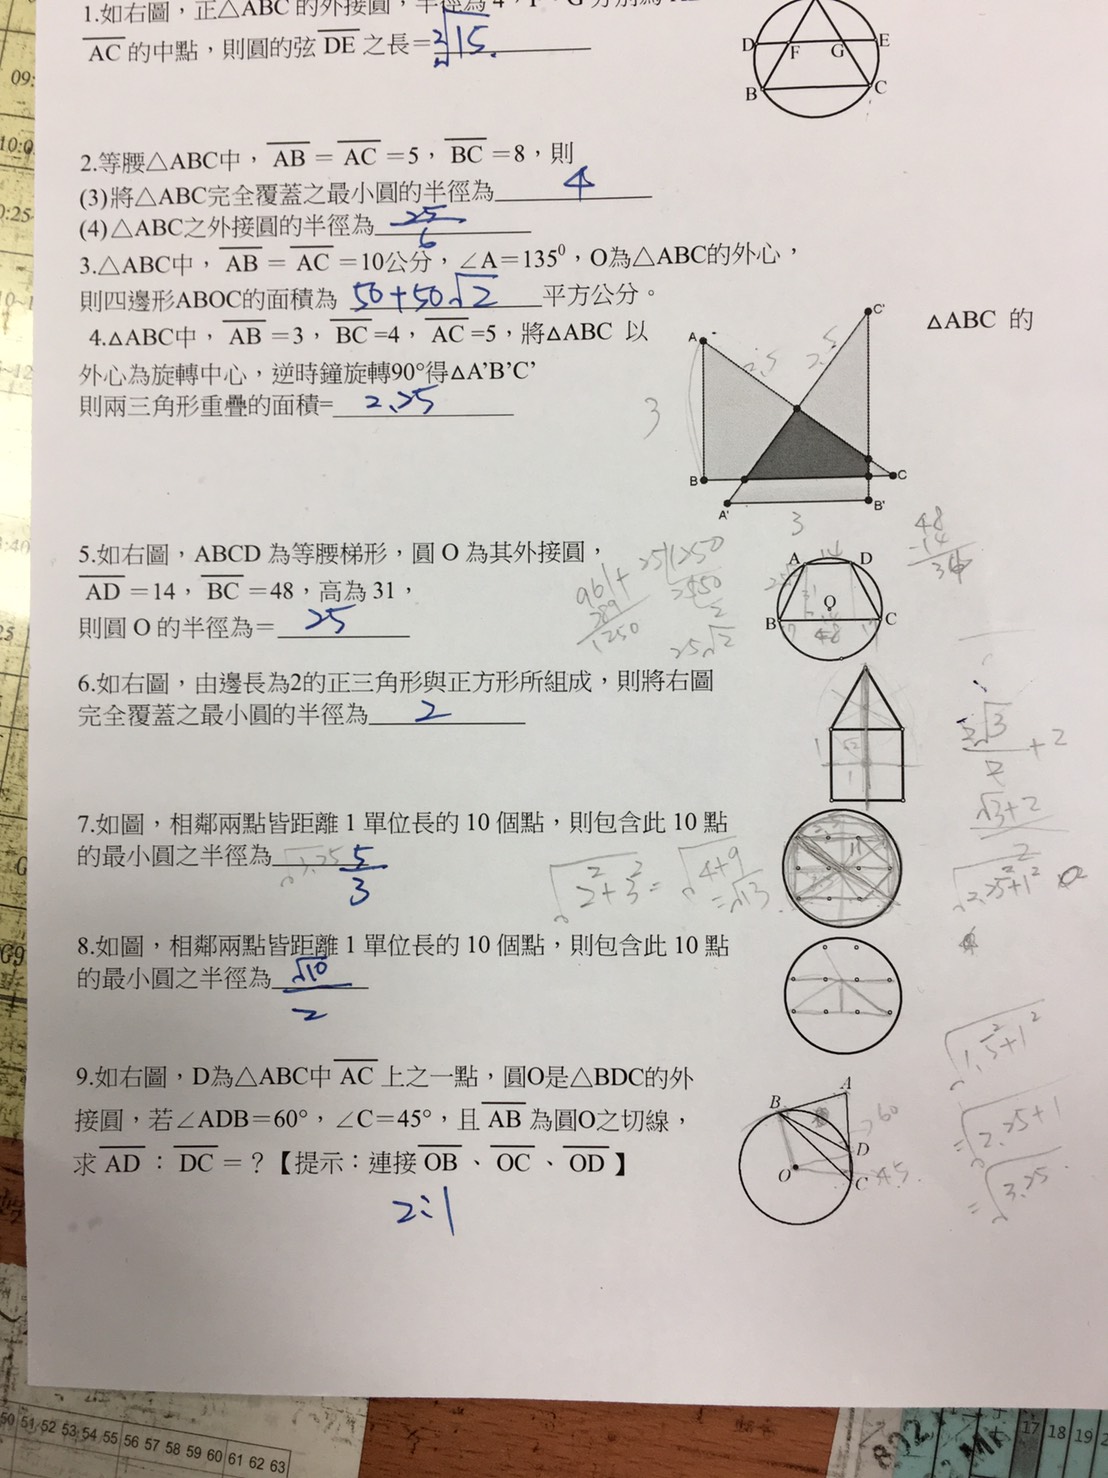 1.如右圖，正△ABC 的外接圓，半徑為 4，F、G 分別為
AC 的中點，則圓的弦 DE 之長=2√15
D E F G B C
2.等腰△ABC中，AB = AC =5，BC =8，則
(3)將△ABC完全覆蓋之最小圓的半徑為 4
(4)△ABC之外接圓的半徑為 25/6
3.△ABC中，AB = AC =10公分，∠A=135⁰，O為△ABC的外心，
則四邊形ABOC的面積為 50+50√2 平方公分。
4.△ABC中，AB =3，BC =4，AC =5，將△ABC 以 △ABC 的
外心為旋轉中心，逆時鐘旋轉90°得△A'B'C'
則兩三角形重疊的面積=
A B C A' B' C' 2.5 2.5 3 3
5.如右圖，ABCD 為等腰梯形，圓 O 為其外接圓，
AD =14，BC =48，高為 31，
則圓 O 的半徑為= 25
961+
289
1250
25√2
A 14 D B O C 48
48
14
34
6.如右圖，由邊長為2的正三角形與正方形所組成，則將右圖
完全覆蓋之最小圓的半徑為 2
2√3/2 +2
√3+2
7.如圖，相鄰兩點皆距離 1 單位長的 10 個點，則包含此 10 點
的最小圓之半徑為 5/3
√2²+3² = √4+9
=√13
8.如圖，相鄰兩點皆距離 1 單位長的 10 個點，則包含此 10 點
的最小圓之半徑為 √10/2
√1.5²+1²
=√2.25+1
=√3.25
9.如右圖，D為△ABC中 AC 上之一點，圓O是△BDC的外
接圓，若∠ADB=60°，∠C=45°，且 AB 為圓O之切線，
求 AD：DC =？【提示：連接 OB、OC、OD】
2:1
A B D O C 60 45
50 51 52 53 54 55 56 57 58 59 60 61 62 63
802
17 18 19